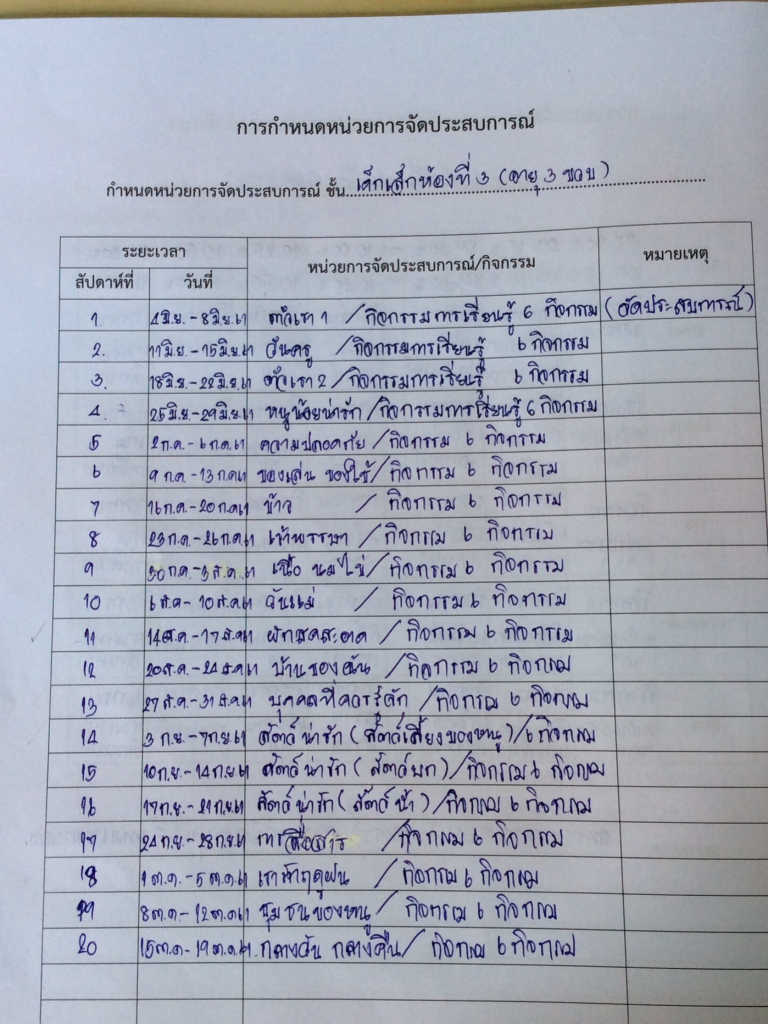 การกำหนดหน่วยการจัดประสบการณ์
กำหนดหน่วยการจัดประสบการณ์ ชั้น เด็กเล็กห้องที่ 3 (อายุ 3 ขวบ)
ระยะเวลา หน่วยการจัดประสบการณ์/กิจกรรม หมายเหตุ
สัปดาห์ที่ วันที่
1. 4มิ.ย.-8มิ.ย.61 ตัวเรา 1 /กิจกรรมการเรียนรู้ 6 กิจกรรม (จัดประสบการณ์)
2. 11มิ.ย-15มิ.ย61 วันครู /กิจกรรมการเรียนรู้ 6 กิจกรรม
3. 18มิ.ย-22มิ.ย.61 ตัวเรา 2 /กิจกรรมการเรียนรู้ 6 กิจกรรม
4. 25มิ.ย-29มิ.ย61 หนูน้อยน่ารัก/กิจกรรมการเรียนรู้ 6 กิจกรรม
5 2ก.ค.-6ก.ค.61 ความปลอดภัย /กิจกรรม ๖ กิจกรรม
6 9ก.ค-13ก.ค61 ของเล่น ของใช้/กิจกรรม ๖ กิจกรรม
7 16ก.ค-20ก.ค61 ข้าว /กิจกรรม ๖ กิจกรรม
8 23ก.ค-26ก.ค.61 เข้าพรรษา /กิจกรรม ๖ กิจกรรม
9 30ก.ค.-3ส.ค.61 เนื้อ นม ไข่/กิจกรรม ๖ กิจกรรม
10 6ส.ค-10ส.ค61 วันแม่ /กิจกรรม ๖ กิจกรรม
11 14ส.ค-17ส.ค61 ผักสดสะอาด /กิจกรรม ๖ กิจกรรม
12 20ส.ค-24ส.ค61 บ้านของฉัน /กิจกรรม ๖ กิจกรรม
13 27ส.ค-31ส.ค61 บุคคลที่ควรรู้จัก /กิจกรรม ๖ กิจกรรม
14 3ก.ย-7ก.ย61 สัตว์น่ารัก (สัตว์เลี้ยงของหนู)/๖ กิจกรรม
15 10ก.ย-14ก.ย.61 สัตว์น่ารัก (สัตว์บก)/กิจกรรม ๖ กิจกรรม
16 17ก.ย-21ก.ย61 สัตว์น่ารัก (สัตว์น้ำ)/กิจกรรม ๖ กิจกรรม
17 24ก.ย-28ก.ย61 การสื่อสาร /กิจกรรม ๖ กิจกรรม
18 1ต.ค.-5ต.ค.61 /กิจกรรม ๖ กิจกรรม
19 8ต.ค-12ต.ค61 ชุมชนของหนู/กิจกรรม ๖ กิจกรรม
20 15ต.ค-19ต.ค.61 กลางวัน กลางคืน/กิจกรรม ๖ กิจกรรม